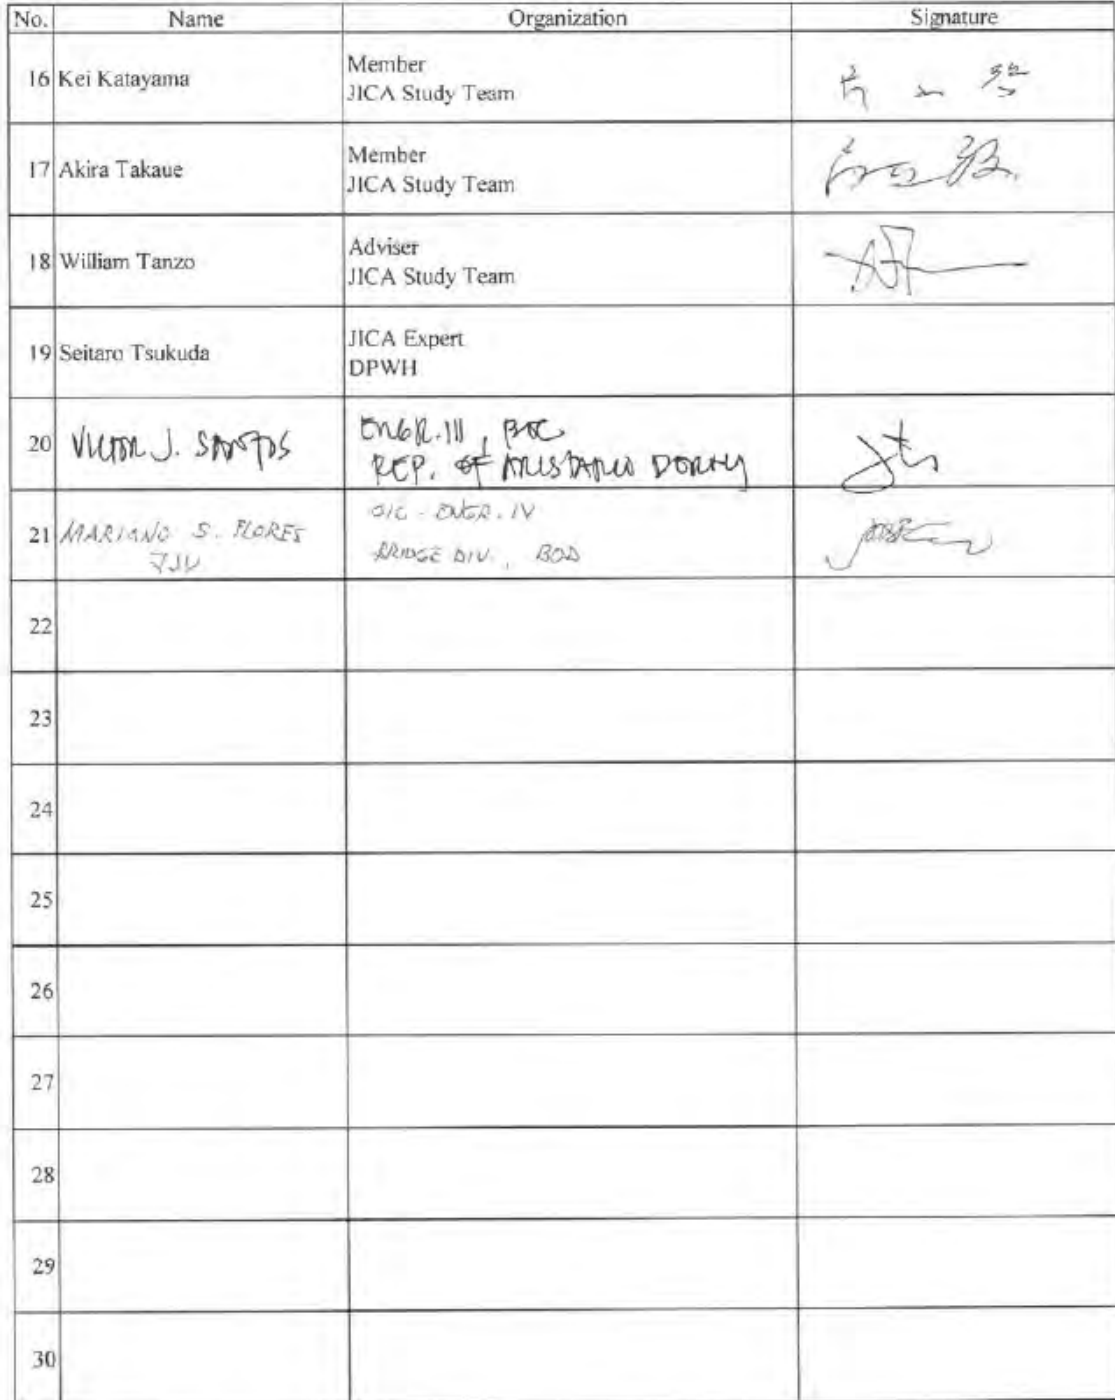 No. Name Organization Signature
16 Kei Katayama Member
JICA Study Team
17 Akira Takaue Member
JICA Study Team
18 William Tanzo Adviser
JICA Study Team
19 Seitaro Tsukuda JICA Expert
DPWH
20 VICTOR J. SANTOS ENGR. III, BOC
REP. OF ARISTARCO DOROY
21 MARIANO S. FLORES OIC - ENGR. IV
BRIDGE DIV., BOD
22
23
24
25
26
27
28
29
30